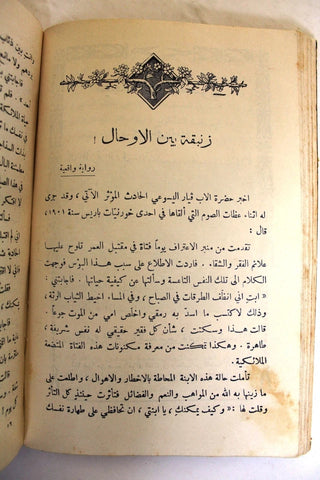 زنبقة بين الاوحال !
رواية واقعية
اخبر حضرة الاب ڤيار اليسوعي الحادث المؤثر الآتي ، وقد جرى
له اثناء عظات الصوم التي القاها في احدى خورنيّات باريس سنة ١٩٠١
قال :
تقدمت من منبر الاعتراف يوماً فتاة في مقتبل العمر تلوح عليها
علائم الفقر والشقاء . فاردت الاطلاع على سبب هذا البؤس فوجهت
الكلام الى تلك النفس التاعسة وسألتها عن كيفية حياتها . فاجابتني :
« ابتِ اني انظّف الطرقات في الصباح ، وفي المساء اخيط الثياب الرثة ،
وذلك لاكتسب ما اسدّ به رمقي واخلص امي من الموت جوعاً .
قالت هذا وسكتت ، شأن كل فقير حقيقي له نفس شريفة ،
طاهرة . وهكذا تمكنت من معرفة مكنونات هذه الفتاة المتضعة
الملائكية .
تأملت حالة هذه الابنة المحاطة بالاخطار والاهوال ، واطلعت على
ما زينها به الله من المواهب والنعم والفضائل فتأثرت حينئذٍ كل التأثر
وقلت لها : « وكيف يمكنك ، يا ابنتي ، ان تحافظي على طهارة نفسك